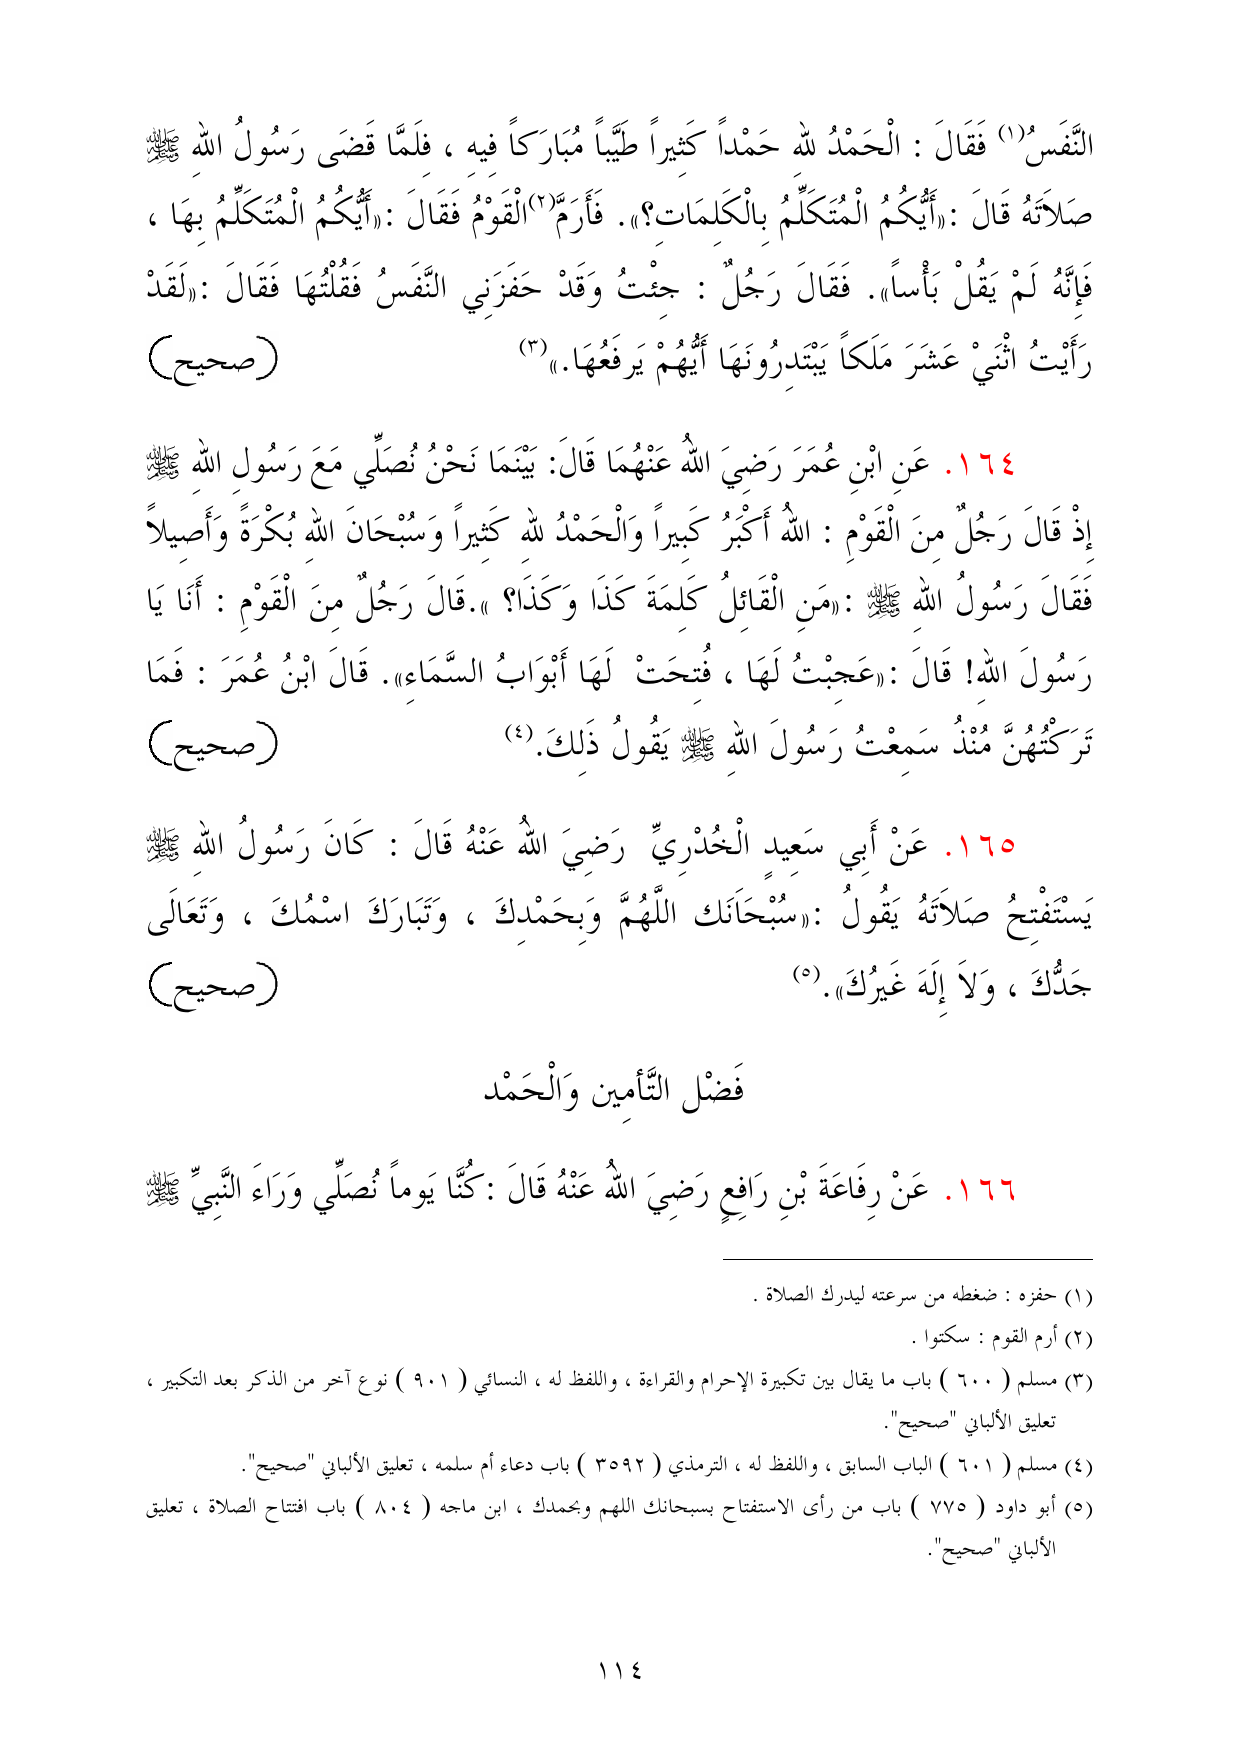 النَّفَسُ(١) فَقَالَ : الْحَمْدُ للهِ حَمْداً كَثِيراً طَيِّباً مُبَارَكاً فِيهِ ، فَلَمَّا قَضَى رَسُولُ اللهِ ﷺ
صَلاَتَهُ قَالَ :«أَيُّكُمُ الْمُتَكَلِّمُ بِالْكَلِمَاتِ؟». فَأَرَمَّ(٢)الْقَوْمُ فَقَالَ :«أَيُّكُمُ الْمُتَكَلِّمُ بِهَا ،
فَإِنَّهُ لَمْ يَقُلْ بَأْساً». فَقَالَ رَجُلٌ : جِئْتُ وَقَدْ حَفَزَنِي النَّفَسُ فَقُلْتُهَا فَقَالَ :«لَقَدْ
رَأَيْتُ اثْنَيْ عَشَرَ مَلَكاً يَبْتَدِرُونَهَا أَيُّهُمْ يَرفَعُهَا.»(٣) (صحيح)
١٦٤. عَنِ ابْنِ عُمَرَ رَضِيَ اللهُ عَنْهُمَا قَالَ: بَيْنَمَا نَحْنُ نُصَلِّي مَعَ رَسُولِ اللهِ ﷺ
إِذْ قَالَ رَجُلٌ مِنَ الْقَوْمِ : اللهُ أَكْبَرُ كَبِيراً وَالْحَمْدُ للهِ كَثِيراً وَسُبْحَانَ اللهِ بُكْرَةً وَأَصِيلاً
فَقَالَ رَسُولُ اللهِ ﷺ :«مَنِ الْقَائِلُ كَلِمَةَ كَذَا وَكَذَا؟ ».قَالَ رَجُلٌ مِنَ الْقَوْمِ : أَنَا يَا
رَسُولَ اللهِ! قَالَ :«عَجِبْتُ لَهَا ، فُتِحَتْ لَهَا أَبْوَابُ السَّمَاءِ». قَالَ ابْنُ عُمَرَ : فَمَا
تَرَكْتُهُنَّ مُنْذُ سَمِعْتُ رَسُولَ اللهِ ﷺ يَقُولُ ذَلِكَ.(٤) (صحيح)
١٦٥. عَنْ أَبِي سَعِيدٍ الْخُدْرِيِّ رَضِيَ اللهُ عَنْهُ قَالَ : كَانَ رَسُولُ اللهِ ﷺ
يَسْتَفْتِحُ صَلاَتَهُ يَقُولُ :«سُبْحَاَنَك اللَّهُمَّ وَبِحَمْدِكَ ، وَتَبَارَكَ اسْمُكَ ، وَتَعَالَى
جَدُّكَ ، وَلاَ إِلَهَ غَيرُكَ».(٥) (صحيح)
فَضْل التَّأمِين وَالْحَمْد
١٦٦. عَنْ رِفَاعَةَ بْنِ رَافِعٍ رَضِيَ اللهُ عَنْهُ قَالَ :كُنَّا يَوماً نُصَلِّي وَرَاءَ النَّبِيِّ ﷺ
(١) حفزه : ضغطه من سرعته ليدرك الصلاة .
(٢) أرم القوم : سكتوا .
(٣) مسلم ( ٦٠٠ ) باب ما يقال بين تكبيرة الإحرام والقراءة ، واللفظ له ، النسائي ( ٩٠١ ) نوع آخر من الذكر بعد التكبير ،
تعليق الألباني "صحيح".
(٤) مسلم ( ٦٠١ ) الباب السابق ، واللفظ له ، الترمذي ( ٣٥٩٢ ) باب دعاء أم سلمه ، تعليق الألباني "صحيح".
(٥) أبو داود ( ٧٧٥ ) باب من رأى الاستفتاح بسبحانك اللهم وبحمدك ، ابن ماجه ( ٨٠٤ ) باب افتتاح الصلاة ، تعليق
الألباني "صحيح".
١١٤